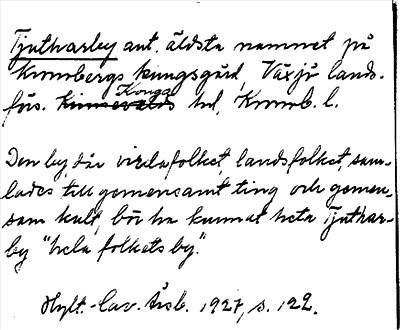 Tjutharby ant. äldsta namnet på
Kronobergs kungsgård, Växjö lands-
förs. Konga
Kinnevalds hd, Kronob. l.
Den by, där virdafolket, landsfolket, sam-
lades till gemensamt ting och gemen-
sam kult, bör ha kunnat heta Tjuthar-
by "hela folkets by".
Hylt.-Cav. Årsb. 1927, s. 122.